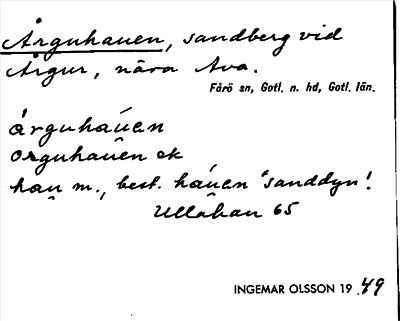 Årguhauen, sandberg vid
Årgur, nära Ava.
Fårö sn, Gotl. n. hd, Gotl. län.
árguháu̯en
orguhau̯en ok
hau̯ m., best. háu̯en "sanddyn!
Ullahau 65
INGEMAR OLSSON 19 49